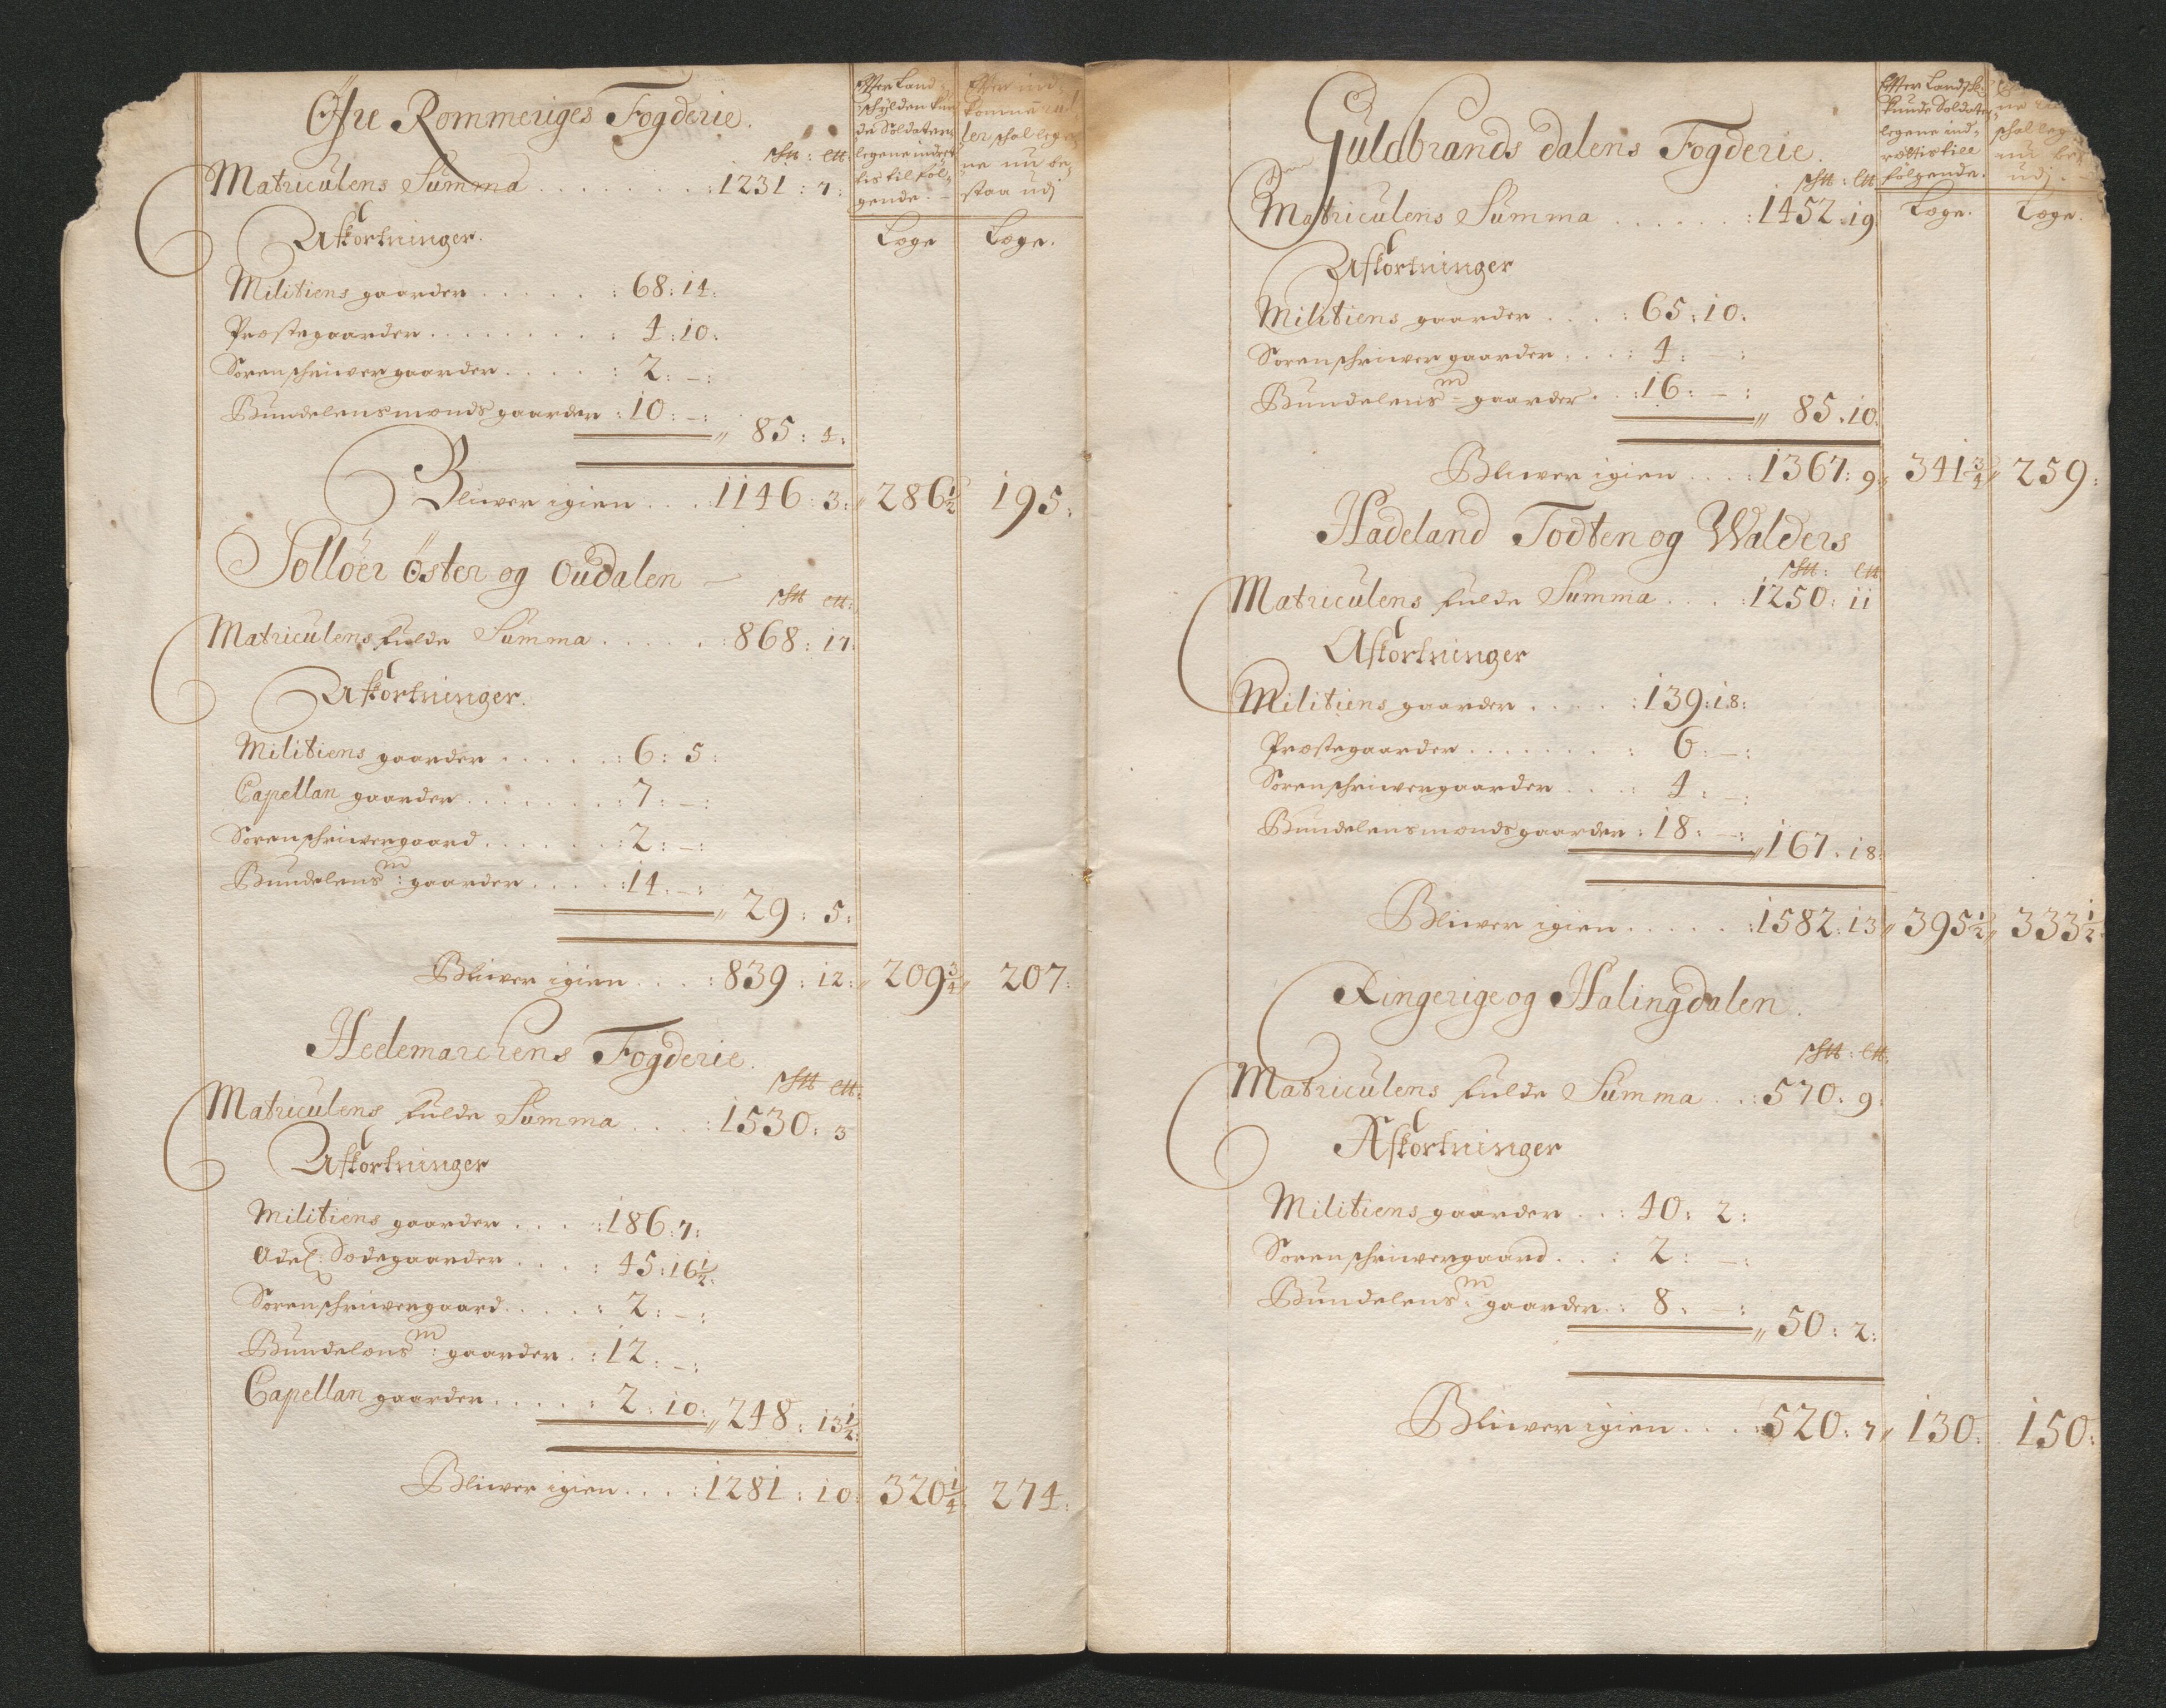 Öfre Rommeriges Fogderie.
Efter Land=
schÿlden kun
de Soldater
legene indret
tis til föl=
gende. -
Efter ind=
komne rul
ler schal lege
ne nu be=
staa udj
s℔ : l℔:
Matriculens Summa . . . . . . . . : 1231 : 7:
Læge
Læge.
Afkortninger.
Militiens gaarder . . . . . : 68: 14:
Præstegaarder . . . . . . . . : 4: 10:
Sorenschriwer gaarder . . . . : 2: –:
Bundelensmænds gaarder : 10: –: „ 85: 4:
Bliwer igien . . . : 1146: 3: „ 286½ 195:
Solloer öster og oudalen –
s℔ l℔:
Matriculens fulde Summa . . . . . : 868: 17:
Afkortninger.
Militiens gaarder . . . . . : 6: 5:
Capellan gaarder . . . . . . . : 7: –:
Sorenschriwergaard . . . . . . : 2: –:
Bundelens m: gaarder . . . . : 14: –: „ 29: 5:
Bliwer igien . . . . : 839: 12: „ 209¾ „ 207:
Hedemarchens Fogderie.
s℔ l℔:
Matriculens fulde Summa . . . . : 1530: 3
Afkortninger
Militiens gaarder . . . . : 186: 7:
Odel: Sædegaarder . . . . : 45: 16½:
Sorenschriwergaard . . . . : 2: –:
Bundelens m: gaarder . : 12: –:
Capellan gaarder . . . . . : 2: 10: „ 248: 13½:
Bliwer igien . . . . : 1281: 10: 320¼ 274:
Guldbrands dalens Fogderie.
Efter Landsk:
kunde Soldater
legene ind=
rettis till
følgende.
schal leg
nu be
udj.
s℔ : l℔
Matriculens Summa . . . . . . : 1452: 19
Læge.
Læge.
Afkortninger
Militiens gaarder . . . . : 65: 10:
Sorenschriwer gaarder . . . : 4: :
Bundelens m = gaarder . . : 16: –: „ 85: 10:
Bliwer igien . . . . : 1367: 9: „ 341¾ „ 259:
Hadeland Todten og Walders
s℔ : l℔
Matriculens fulde Summa . . . : 1250: 11
Afkortninger
Militiens gaarder . . . . . : 139: 18:
Præstegaarder . . . . . . . : 6: –:
Sorenschriwergaarder . . . : 4: –:
Bundelensmændsgaarder : 18: –: „ 167: 18:
Bliwer igien . . . . . : 1582: 13 „ 395½ „ 333½
Ringerige og Halingdalen.
s℔ : l℔:
Matriculens fulde Summa . . : 570: 9:
Afkortninger
Militiens gaarder . . : 40: 2:
Sorenschriwergaard . . : 2: –:
Bundelens m: gaarder . : 8: –: „ 50: 2:
Bliwer igien . . . : 520: 7 „ 130: 150: